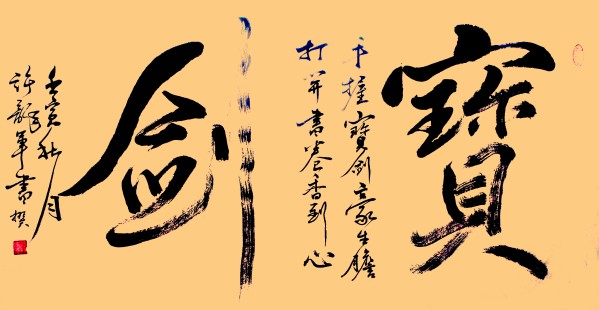 寶
手握寶劍豪生膽
打開書卷香到心
劍
壬寅秋月
許龍軍書撰